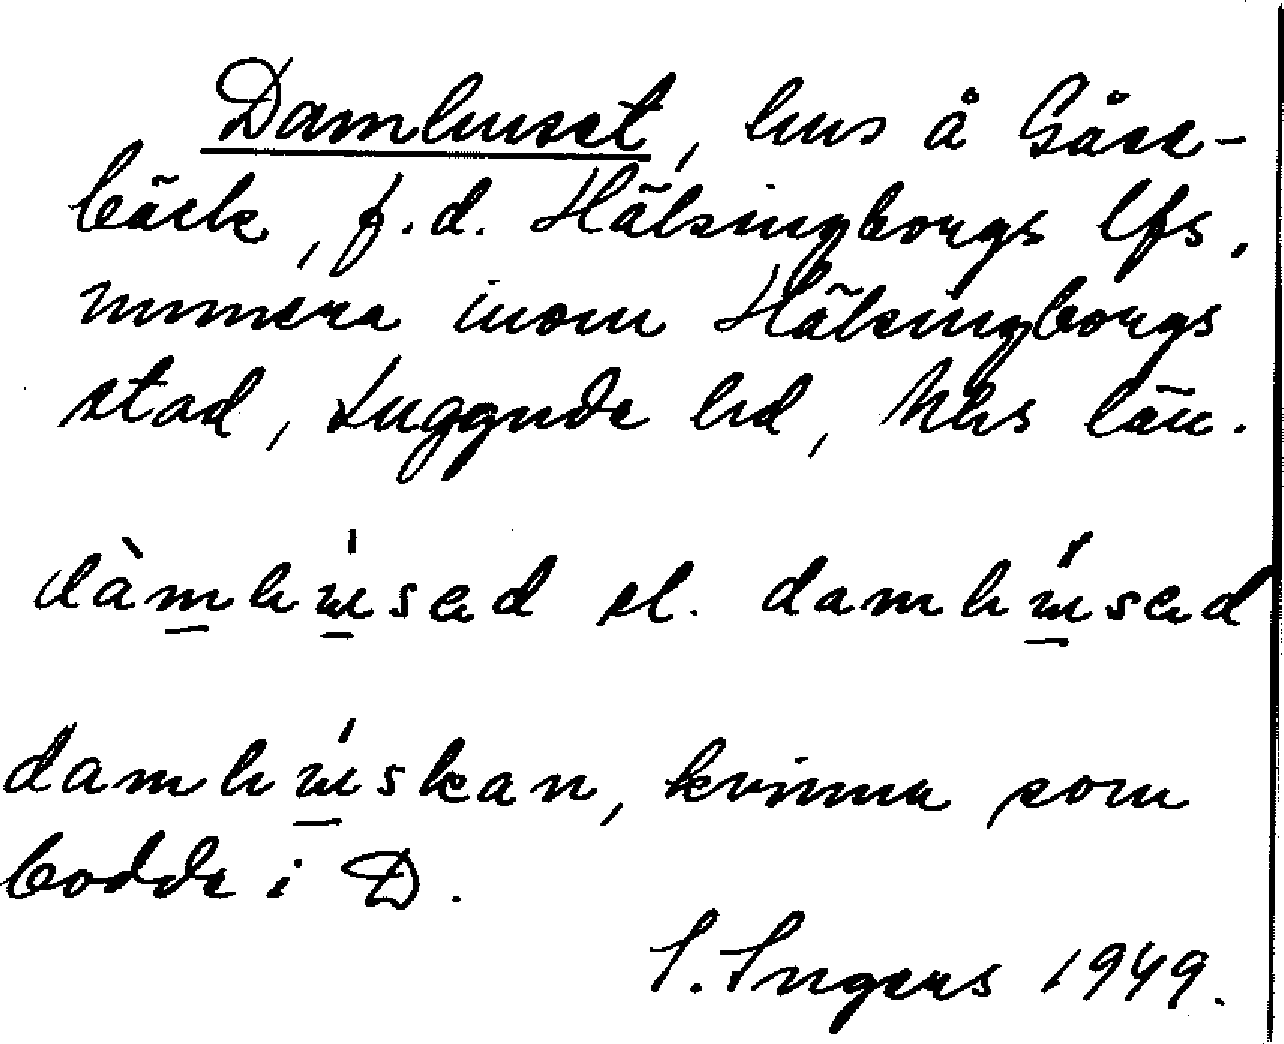 Damhuset, hus å Gåse-
bäck, f.d. Hälsingborgs lfs,
numera inom Hälsingborgs
stad, Luggude hd, Mhs län.
dàmhúsed el. damhúsed
damhúskan, kvinna som
bodde i D.
S. Ingers 1949.